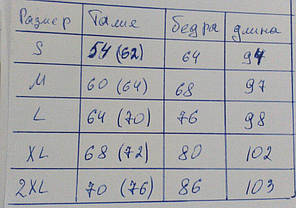 Размер Талия бедра длина
S 54 (62) 64 94
M 60 (64) 68 97
L 64 (70) 76 98
XL 68 (72) 80 102
2XL 70 (76) 86 103